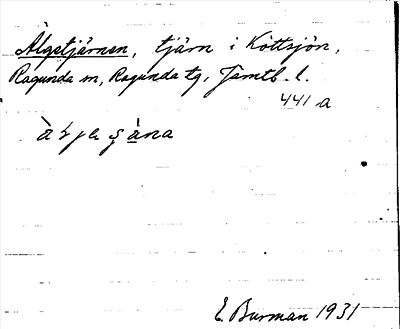 Älgstjärnen, tjärn i Köttsjön,
Ragunda sn, Ragunda tg, Jämtl. l.
441 a
E. Burman 1931